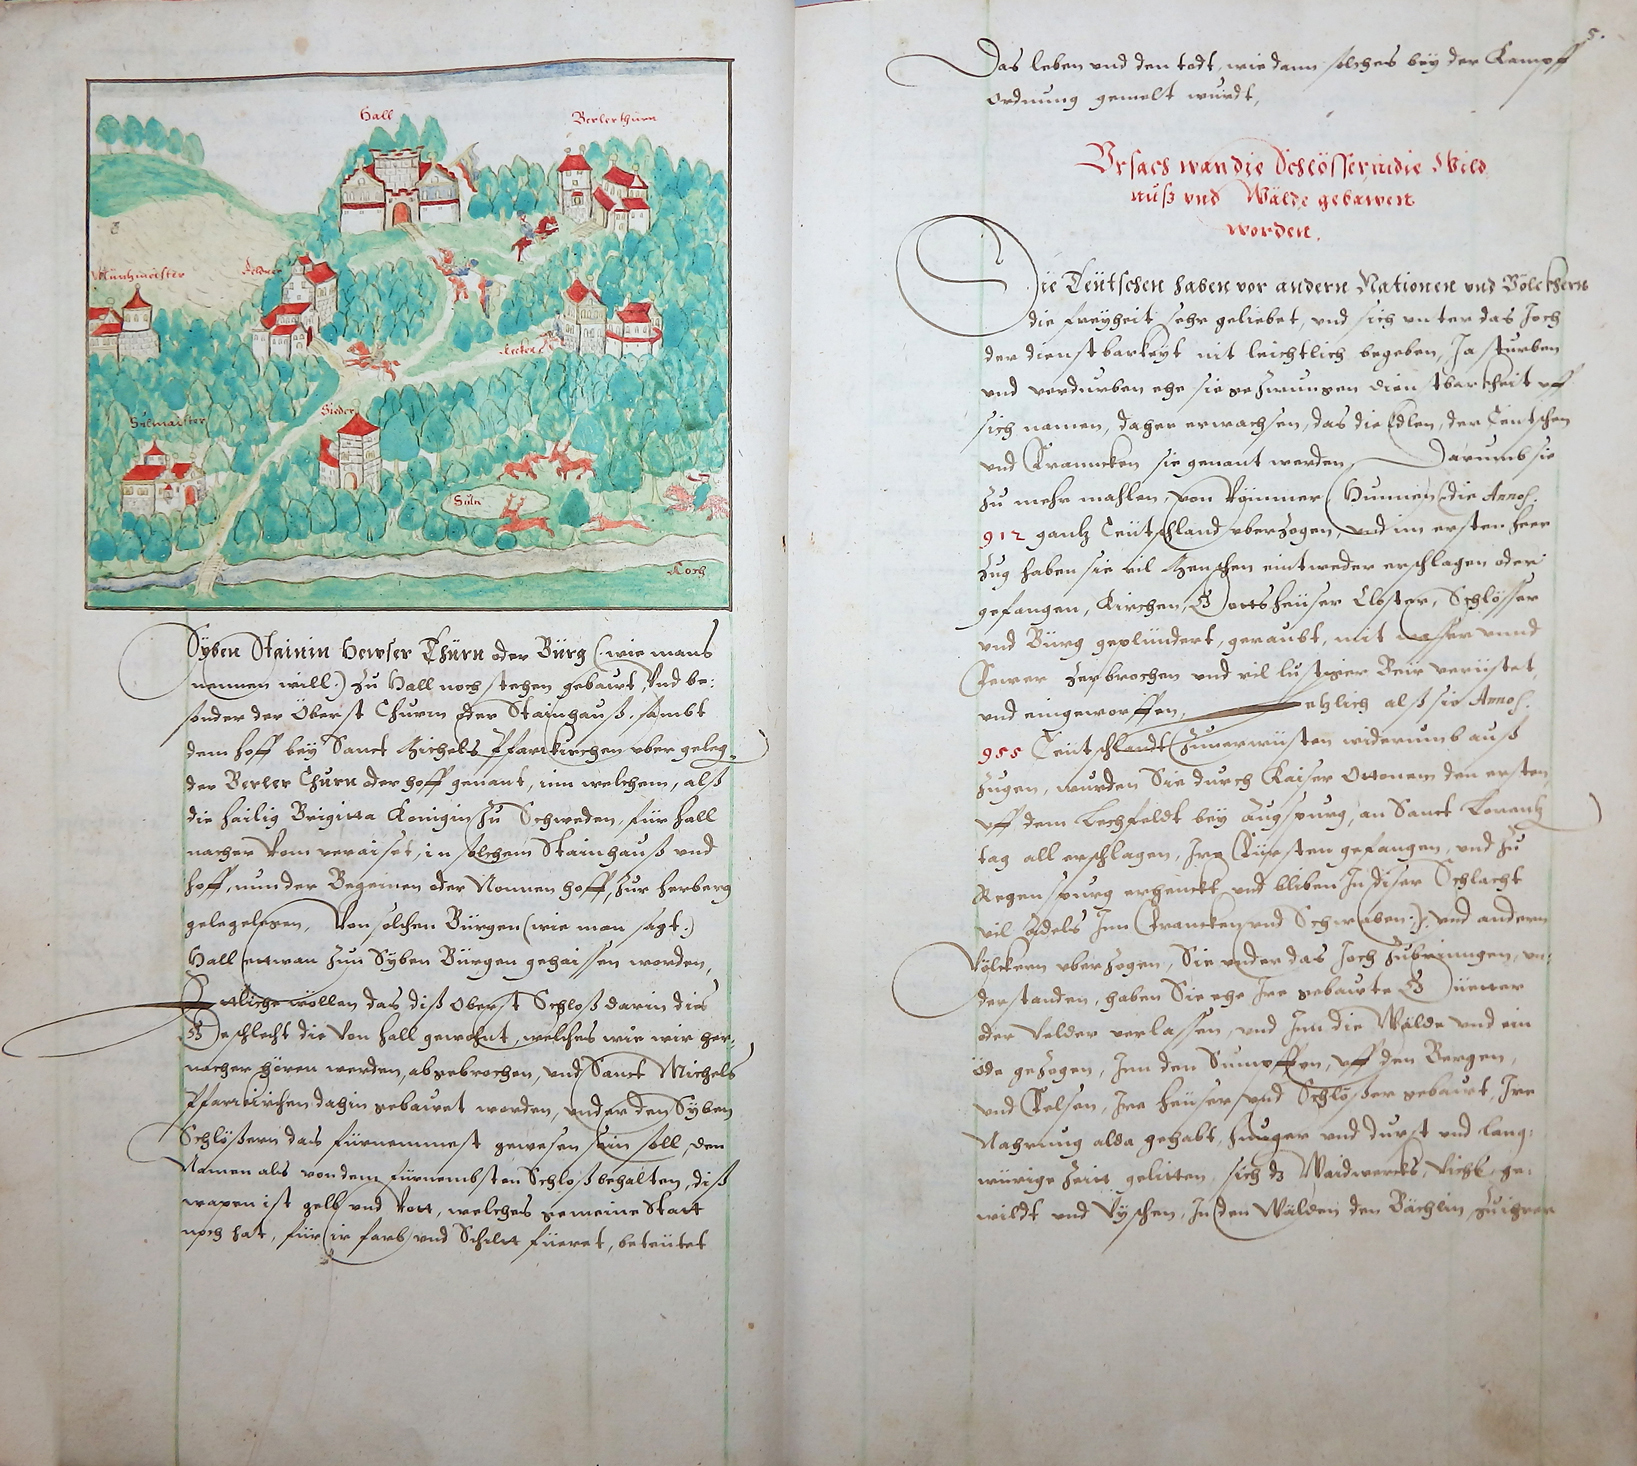 Hall
Berlerthurn
Müntzmeister
Kecken
Sieder
Sulmaister
Suln
Koch
Syben Stainin Hewser Thürn oder Bürg (: wie mans
nennen will :) zu Hall noch stehen gebawt, Vnd be:
sonder der Öberst Thurm oder Stainhauß, sambt
dem hoff bey Sanct Michels Pfarrkirchen vber geleg..
der Berler Thurn oder hoff genant, inn welchem, alß
die hailig Brigitta Konigin zu Schweden, für Hall
nacher Rom verraiset, in solchem Stainhauß vnd
hoff, nun der Begeinen oder Nonnen hoff, zur herberg
gelegen, Von solchen Bürgen (wie man sagt :)
Hall ettwan zun Syben Bürgen gehaissen worden,
Ettliche wöllen das diß Oberst Schloß darin dies
Geschlecht die Von Hall gewohnt, welches wie wir her:
nacher hören werden, abgebrochen, vnd Sanct Michels
Pfarrkirchen dahin gebawet worden, vnder den Syben
Schlößern das fürnemmest gewesen sein soll, den
Namen als von dem fürnembsten Schloß behalten, diß
wapen ist gelb vnd Rott, welches gemeine Statt
noch hat, für ir farb vnd Schilt füeret, beteütet
5.
Das leben vnd den todt, wie dann solches bey der Kampff
ordnung gemelt wurdt,
Vrsach wan die Schlösser in die Wild
nuß vnd Wälde gebawen
worden.
Die Teütschen haben vor andern Nationen vnd Völckhern
die freyheit sehr geliebet, vnd sich vnter das Joch
der dienstbarkeyt nit leichtlich begeben, Ja sturben
vnd verdurben ehe sie gezwungen dienstbarkheit vff
sich namen, daher erwachsen, das die Edlen, der Teutschen
vnd Francken sie genant werden, Darumb sie
zu mehr mahlen, von Römmer Hunnen (die Anno.
912 gantz Teütschland vberzogen, vnd im ersten heer
zug haben sie vil Menschen eintweder erschlagen oder
gefangen, Kirchen, Gottsheüser Clöster, Schlösser
vnd Bürg geplündert, geraubt, mit wasser vnnd
Fewer zerbrochen vnd vil lustiger verüstet,
vnd eingeworffen, etzlich alß sie Anno.
955 Teütschlandt zuverwüsten widerumb auß
zugen, wurden Sie durch Kaiser Ottonem den ersten
vff dem Lechfeldt bey Augspurg, an Sanct Lorentz
tag all erschlagen, Ire Fürsten gefangen, vnd zu
Regenspurg erhenckt vnd bliben In diser Schlacht
vil Adels Inn Francken vnd Schwaben :) vnd andern
Völckern vberzogen, Sie vnder das Joch zubringen, vn:
derstanden, haben Sie ehe Ire gebawte Güetter
oder Velder verlassen, vnd Inn die Wälde vnd ein
öde gezogen, Inn den Sumpffen, vff den Bergen,
vnd Felsen, Ire heüser vnd Schlößer gebawt, Ire
Nahrung alda gehabt, hunger vnd durst vnd lang:
würige zeitt gelitten, sich deß Waidwercks,
wildt vnd Vyschen, In den Wälden den Bächlin, zu ihrer